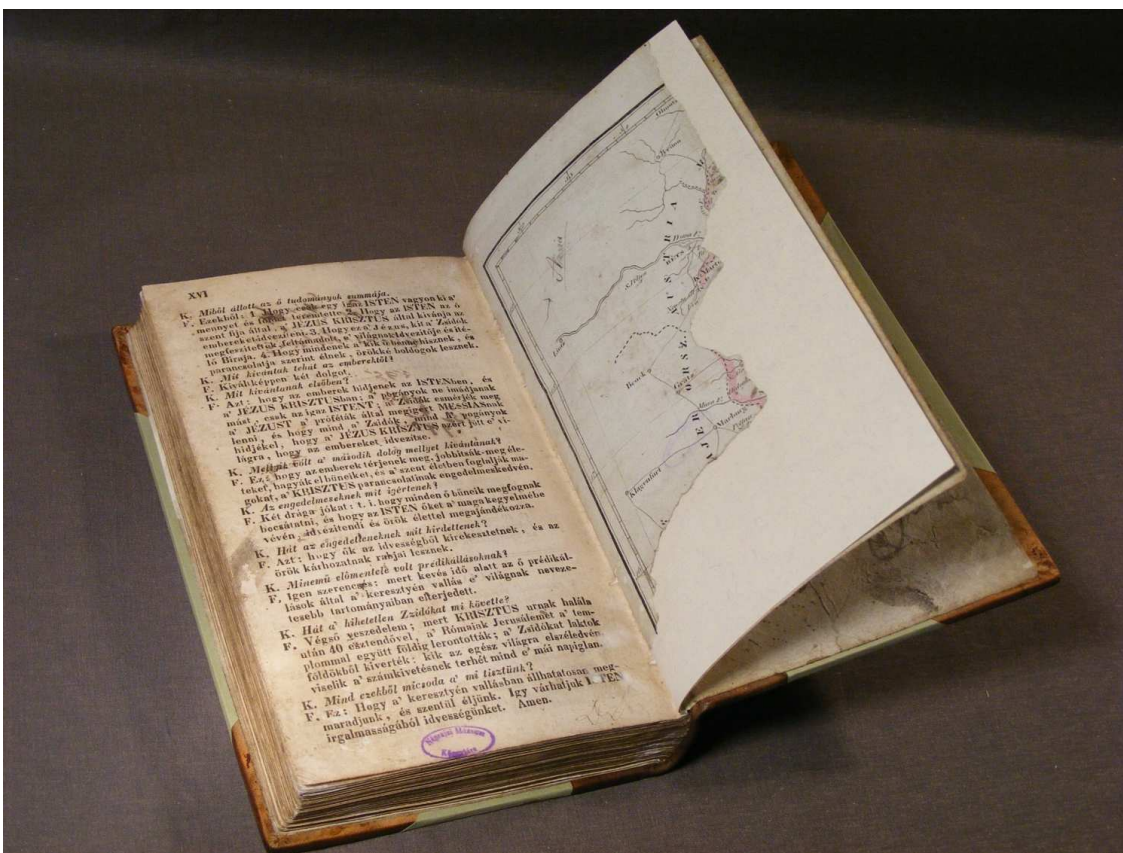 XVI
K. Miből állott az ő tudományok summája.
F. Ezekből: 1. Hogy csak egy igaz ISTEN vagyon ki a'
mennyet és földet teremtette. 2. Hogy az ISTEN az ő
szent fija által, a' JÉZUS KRISZTUS által kivánja az
embereket idvezíteni. 3. Hogy ez a' Jézus, kit a' Zsidók
megfeszítettek feltámadott, a' világnak idvezitője és íté-
lő Birája. 4. Hogy mindenek a' kik ő benne hisznek, és
parancsolatja szerint élnek, örökké boldogok lesznek.
K. Mit kivántak tehát az emberektől?
F. Kiváltképpen két dolgot.
K. Mit kivántanak elsőben?
F. Azt: hogy az emberek hidjenek az ISTENben, és
a' JÉZUS KRISZTUSban; a' pogányok ne imádjanak
mást, csak az igaz ISTENT; a' Zsidók esmérjék meg
a' JÉZUST a' próféták által megigért MESSIÁSnak
lenni, és hogy mind a' Zsidók, mind a' pogányok
hidjékel, hogy a' JÉZUS KRISZTUS azért jött e' vi-
lágra, hogy az embereket idvezítse.
K. Mellyik volt a' második dolog mellyet kivántanak?
F. Ez: hogy az emberek térjenek meg, jobbítsák-meg éle-
teket, hagyák el bűneiket, és a' szent életben foglalják ma-
gokat, a' KRISZTUS parancsolatinak engedelmeskedvén.
K. Az engedelmeseknek mit igértenek?
F. Két drága jókat: t. i. hogy minden ő bűneik megfognak
bocsátatni, és hogy az ISTEN őket a' maga kegyelmébe
vévén, idvezítendi és örök élettel megajándékozza.
K. Hát az engedetleneknek mit hirdettenek?
F. Azt: hogy ők az idvességből kirekesztetnek, és az
örök kárhozatnak rabjai lesznek.
K. Minemü előmentele volt prédikállásoknak?
F. Igen szerencsés: mert kevés idő alatt az ő prédikál-
lások által a' keresztyén vallás e' világnak neveze-
tesebb tartományaiban elterjedett.
K. Hát a' hihetetlen Zsidókat mi követte?
F. Végső veszedelem; mert KRISZTUS urnak halála
után 40 esztendővel, a' Rómaiak Jerusálemet a' tem-
plommal együtt földig lerontották; a' Zsidókat laktok
földökből kiverték: kik az egész világra elszéledvén
viselik a' számkivetésnek terhét mind e' mái napiglan.
K. Mind ezekből micsoda a' mi tisztünk?
F. Ez: Hogy a' keresztyén vallásban állhatatosan meg-
maradjunk, és szentül éljünk. Igy várhatjuk ISTEN
irgalmasságából idvességünket. Amen.
Könyvtára
Brünn
AUSTRIA
Duna F.
BÉCS
Bruck
Grätz
Mura F.
Marburg
Klagenfurt
AJER ORSZ.